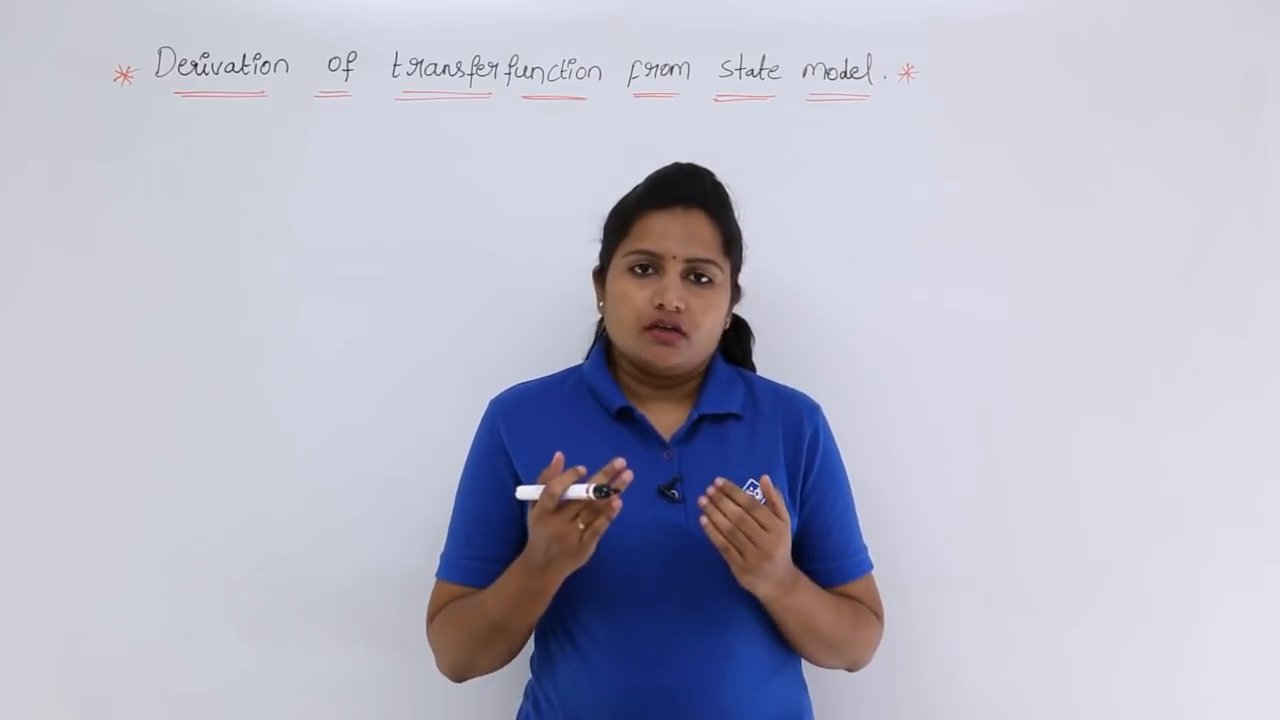 * Derivation of transferfunction from state model. *